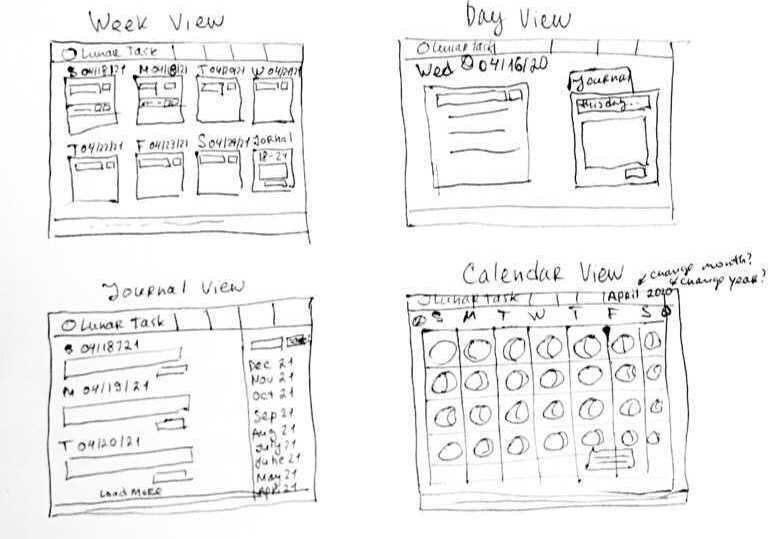 Week View
Lunar Task
S 04/18/21 M 04/18/21 T 04/20/21 W 04/21/21
T 04/22/21 F 04/23/21 S 04/24/21 Jornal
18-24
Day View
Lunar Task
Wed 04/16/20
Journal
this day...
Journal View
Lunar Task
S 04/18/21
M 04/19/21
T 04/20/21
Load More
Dec 21
Nov 21
Oct 21
Sep 21
Aug 21
July 21
June 21
May 21
Apr 21
Calendar View
change month?
change year?
Lunar Task April 2020
S M T W T F S